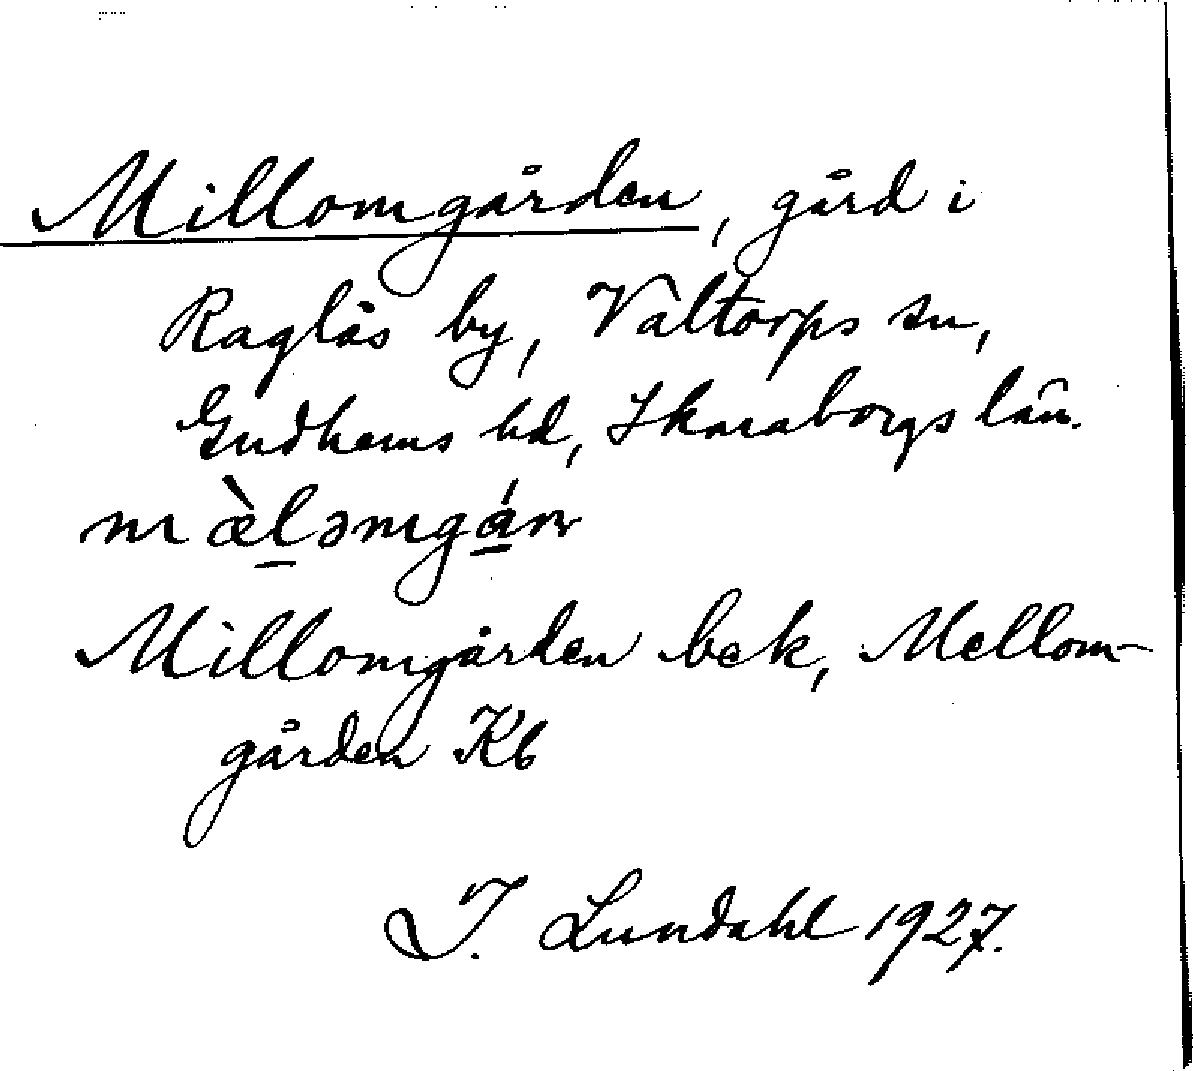 Millomgården, gård i
Raglås by, Valtorps sn,
Gudhems hd, Skaraborgs län.
mæ̀l̠əmgá̠rn
Millomgården bek, Mellom-
gården Kb
I. Lundahl 1927.